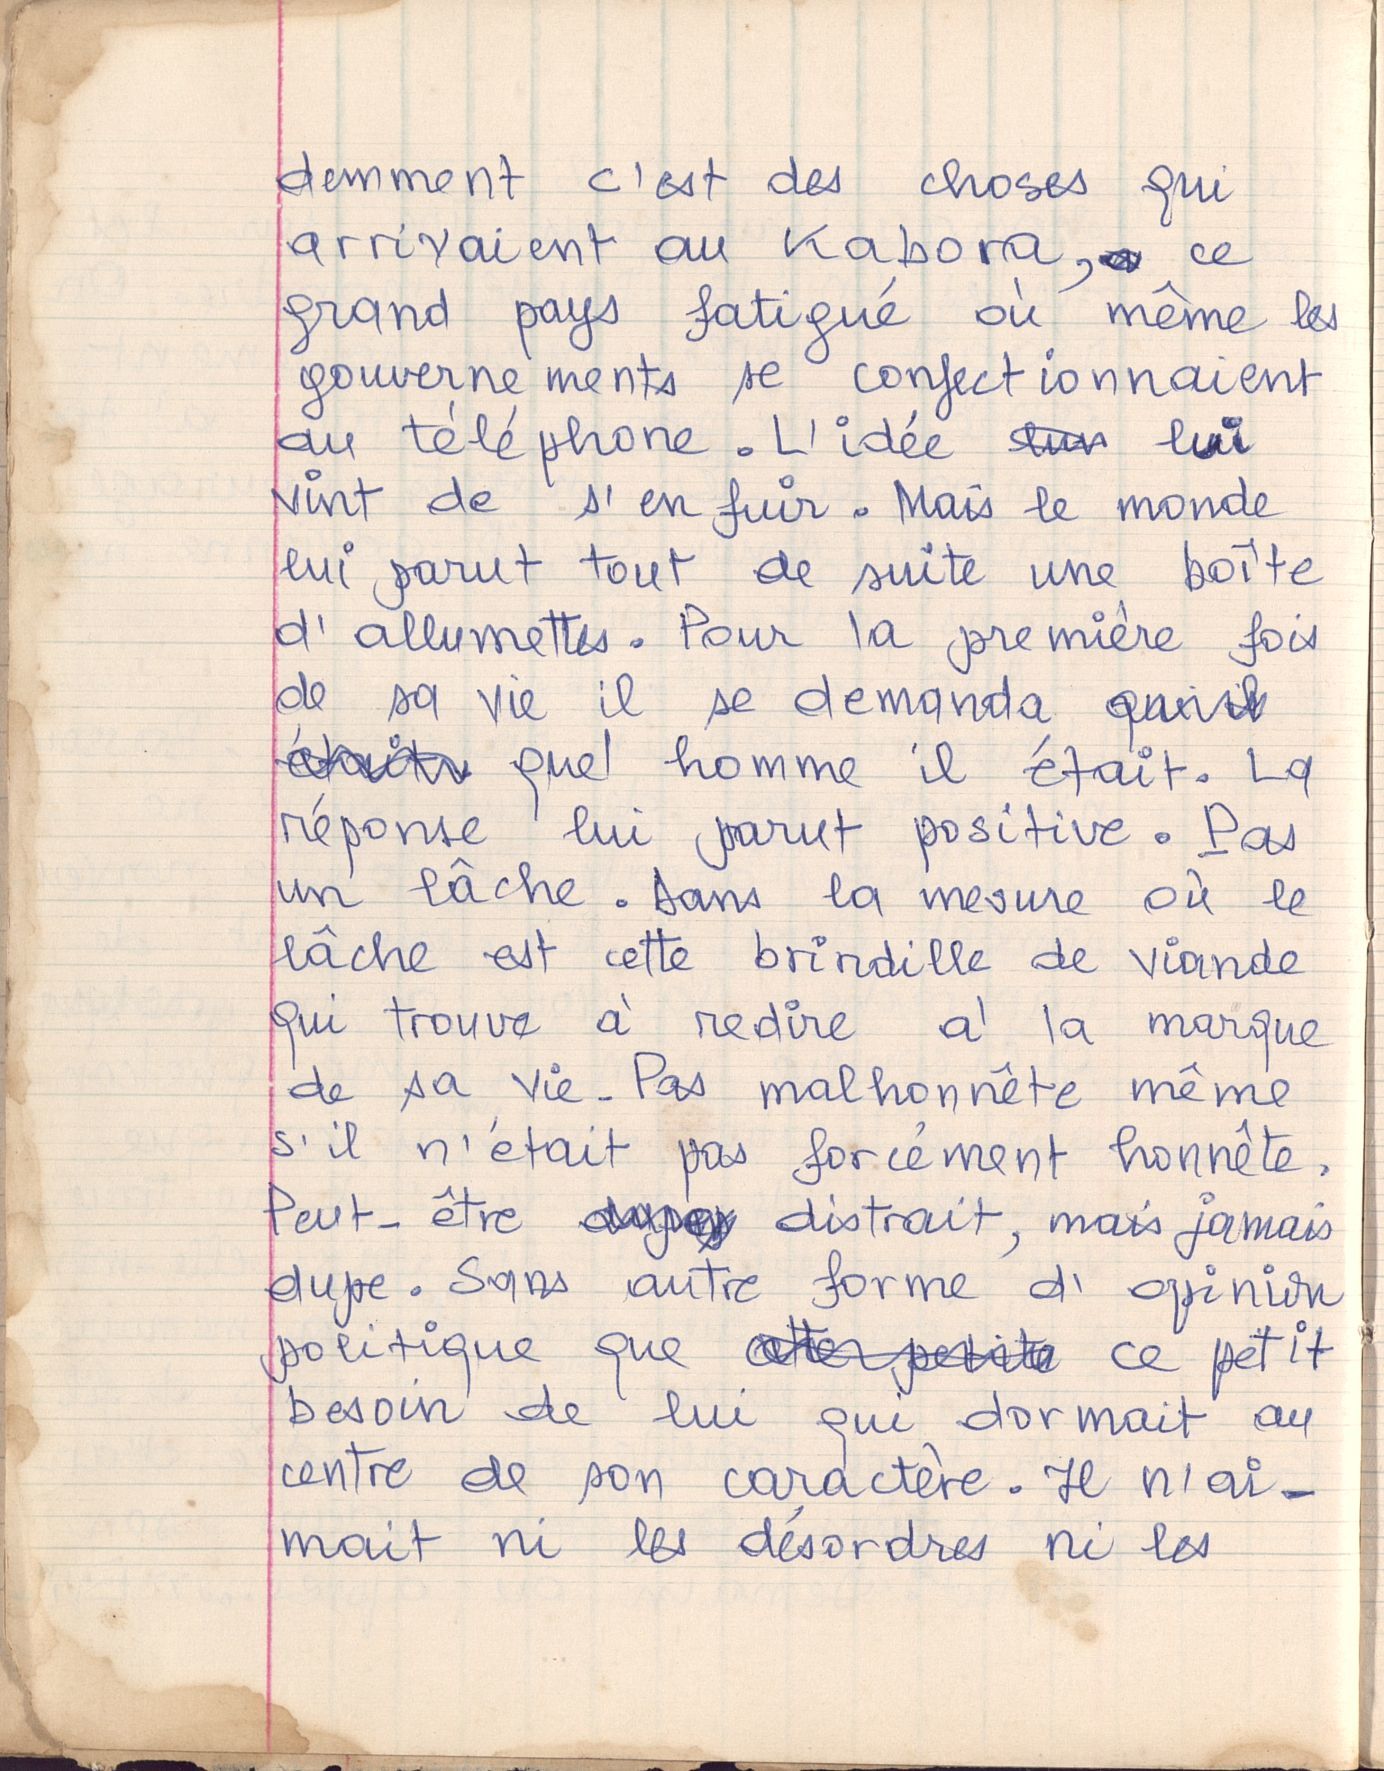 demment c'est des choses qui
arrivaient au Kabora, ce
grand pays fatigué où même les
gouvernements se confectionnaient
au téléphone. L'idée lui
vint de s'enfuir. Mais le monde
lui parut tout de suite une boîte
d'allumettes. Pour la première fois
de sa vie il se demanda qui il
était quel homme il était. La
réponse lui parut positive. Pas
un lâche. Dans la mesure où le
lâche est cette brindille de viande
qui trouve à redire à la marque
de sa vie - Pas malhonnête même
s'il n'était pas forcément honnête.
Peut-être distrait, mais jamais
dupe. Sans autre forme d'opinion
politique que cette petite ce petit
besoin de lui qui dormait au
centre de son caractère. Il n'ai-
mait ni les désordres ni les